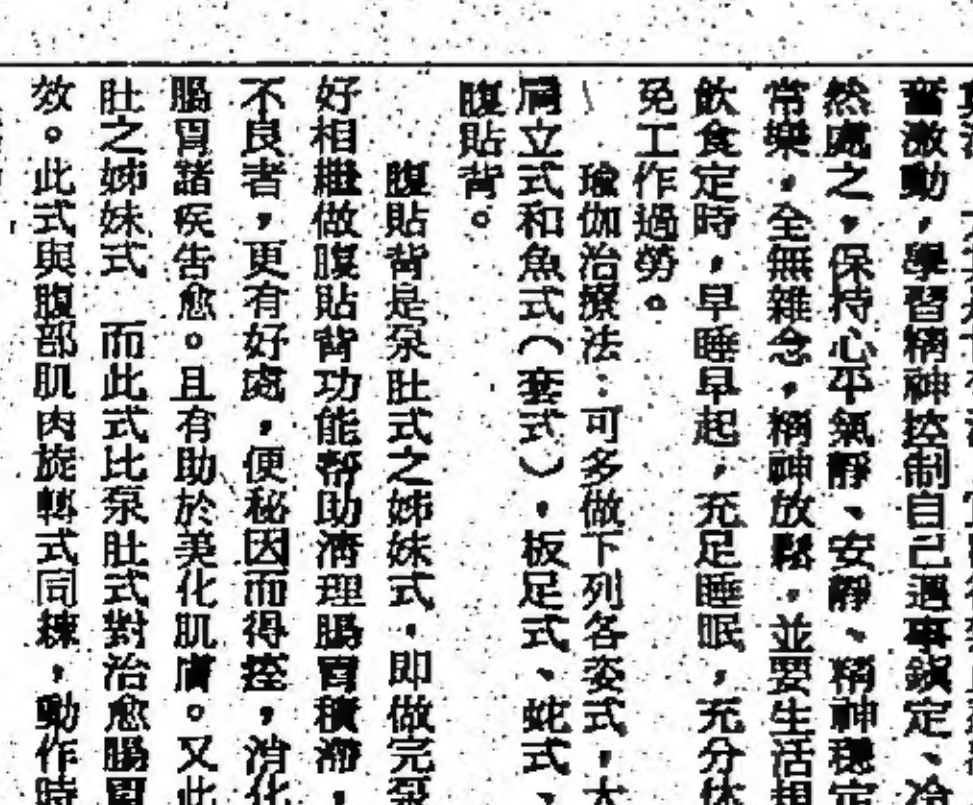 奮激動，學習精神控制自己遇事鎮定、冷
然處之，保持心平氣靜、安靜、精神穩定
常樂，全無雜念，精神放鬆，並要生活規
飲食定時，早睡早起，充足睡眠，充分休
免工作過勞。
瑜伽治療法：可多做下列各姿式，大
肩立式和魚式（套式），板足式、蛇式、
腹貼背。
腹貼背是泵肚式之姊妹式，即做完泵
好相繼做腹貼背功能幫助清理腸胃積滯，
不良者，更有好處，便秘因而得控，消化
腸胃諸疾告愈。且有助於美化肌膚。又此
肚之姊妹式 而此式比泵肚式對治愈腸胃
效。此式與腹部肌肉旋轉式同練，動作時